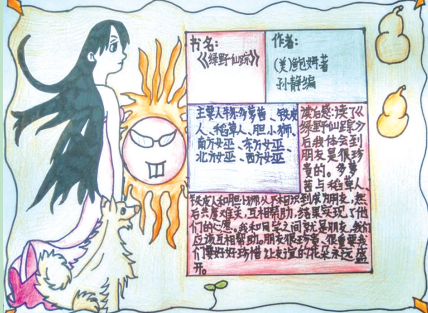 书名:
《绿野仙踪》
作者:
(美)鲍姆著
孙静编
主要人物:多萝茜、铁皮
人、稻草人、胆小狮、
南方女巫、东方女巫、
北方女巫、西方女巫。
读后感:读了《
绿野仙踪》
后我体会到
朋友是很珍
贵的。多萝
茜与稻草人、
铁皮人和胆小狮从不相识到成为朋友,然
后共度难关,互相帮助,结果实现了他
们的心愿。我和同学之间就是朋友,我们
应该互相帮助。朋友很珍贵、很重要我
们要好好珍惜,让友谊的花朵永远盛
开。